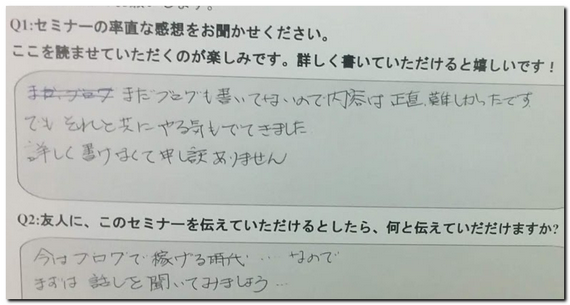 お願いします。
Q1:セミナーの率直な感想をお聞かせください。
ここを読ませていただくのが楽しみです。詳しく書いていただけると嬉しいです！
まだ、ブログ まだブログも書いてないので内容は正直難しかったです
でもそれと共にやる気もでてきました
詳しく書けなくて申し訳ありません
Q2:友人に、このセミナーを伝えていただけるとしたら、何と伝えていだだけますか?
今はブログで稼げる時代…なので
まずは話しを聞いてみましょう…